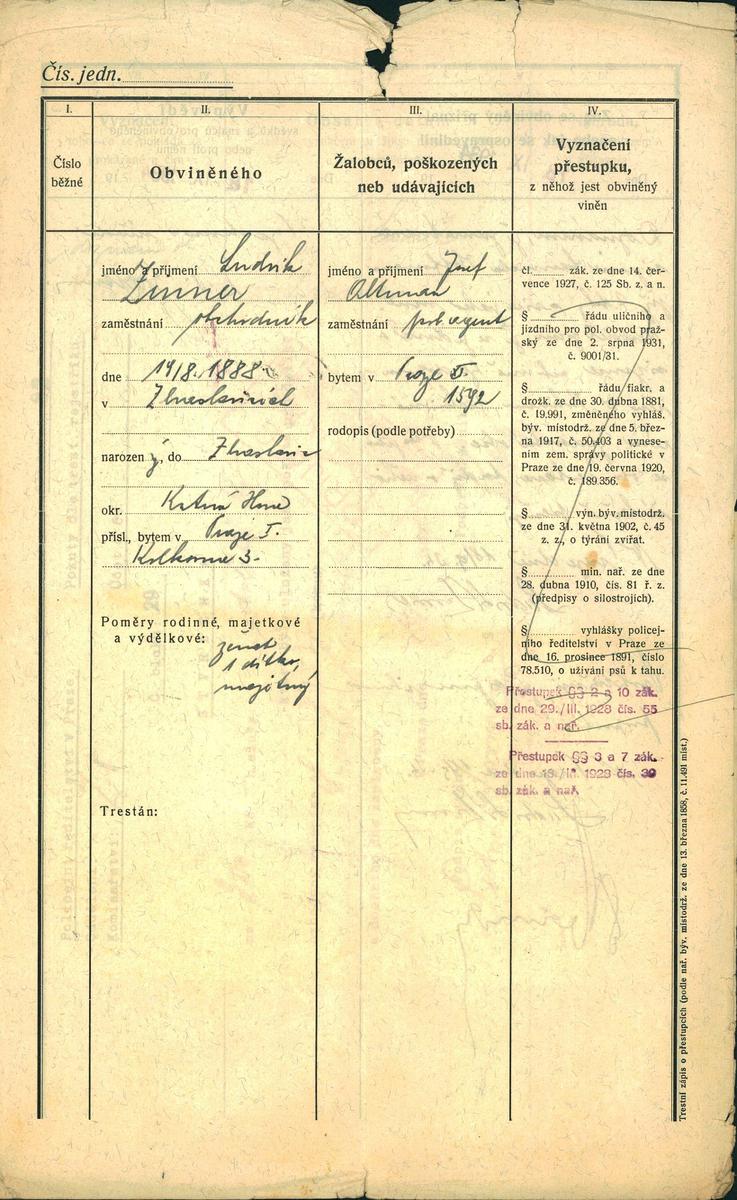 Čís. jedn.
I.
Číslo
běžné
II.
Obviněného
III.
Žalobců, poškozených
neb udávajících
IV.
Vyznačení
přestupku,
z něhož jest obviněný
viněn
jméno a příjmení Ludvík
Zinner
zaměstnání obchodník
dne 19/8. 1888
v Zbraslavicích
narozen ý, do Zbraslavic
okr. Kutná Hora
přísl., bytem v Praze I.
Kolkovna 3.
Poměry rodinné, majetkové
a výdělkové:
ženat
1 dítko,
nemajetný
Trestán:
jméno a příjmení Josef
Altman
zaměstnání pol. agent
bytem v Praze II.
1592
rodopis (podle potřeby)
čl. zák. ze dne 14. čer-
vence 1927, č. 125 Sb. z. a n.
§ řádu uličního a
jízdního pro pol. obvod praž-
ský ze dne 2. srpna 1931,
č. 9001/31.
§ řádu fiakr. a
drožk. ze dne 30. dubna 1881,
č. 19.991, změněného vyhláš.
býv. místodrž. ze dne 5. břez-
na 1917, č. 50.403 a vynese-
ním zem. správy politické v
Praze ze dne 19. června 1920,
č. 189.356.
§ výn. býv. místodrž.
ze dne 31. května 1902, č. 45
z. z., o týrání zvířat.
§ min. nař. ze dne
28. dubna 1910, čís. 81 ř. z.
(předpisy o silostrojích).
§ vyhlášky policej-
ního ředitelství v Praze ze
dne 16. prosince 1891, číslo
78.510, o užívání psů k tahu.
Přestupek §§ 2 a 10 zák.
ze dne 29./III. 1928 čís. 55
sb. zák. a nař.
Přestupek §§ 3 a 7 zák.
ze dne 18/II. 1928 čís. 39
sb. zák. a nař.
Trestní zápis o přestupcích (podle nař. býv. místodrž. ze dne 13. března 1858, č. 11.491 míst.)